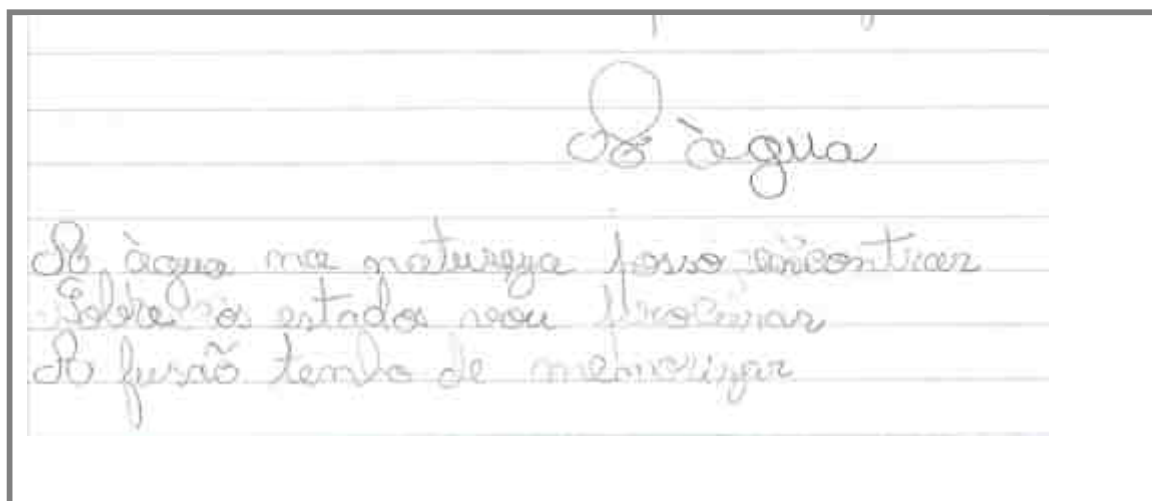 A àgua
A àgua na natureza posso encontrar
Sobre os estados vou procurar
A fusão tenho de memorizar